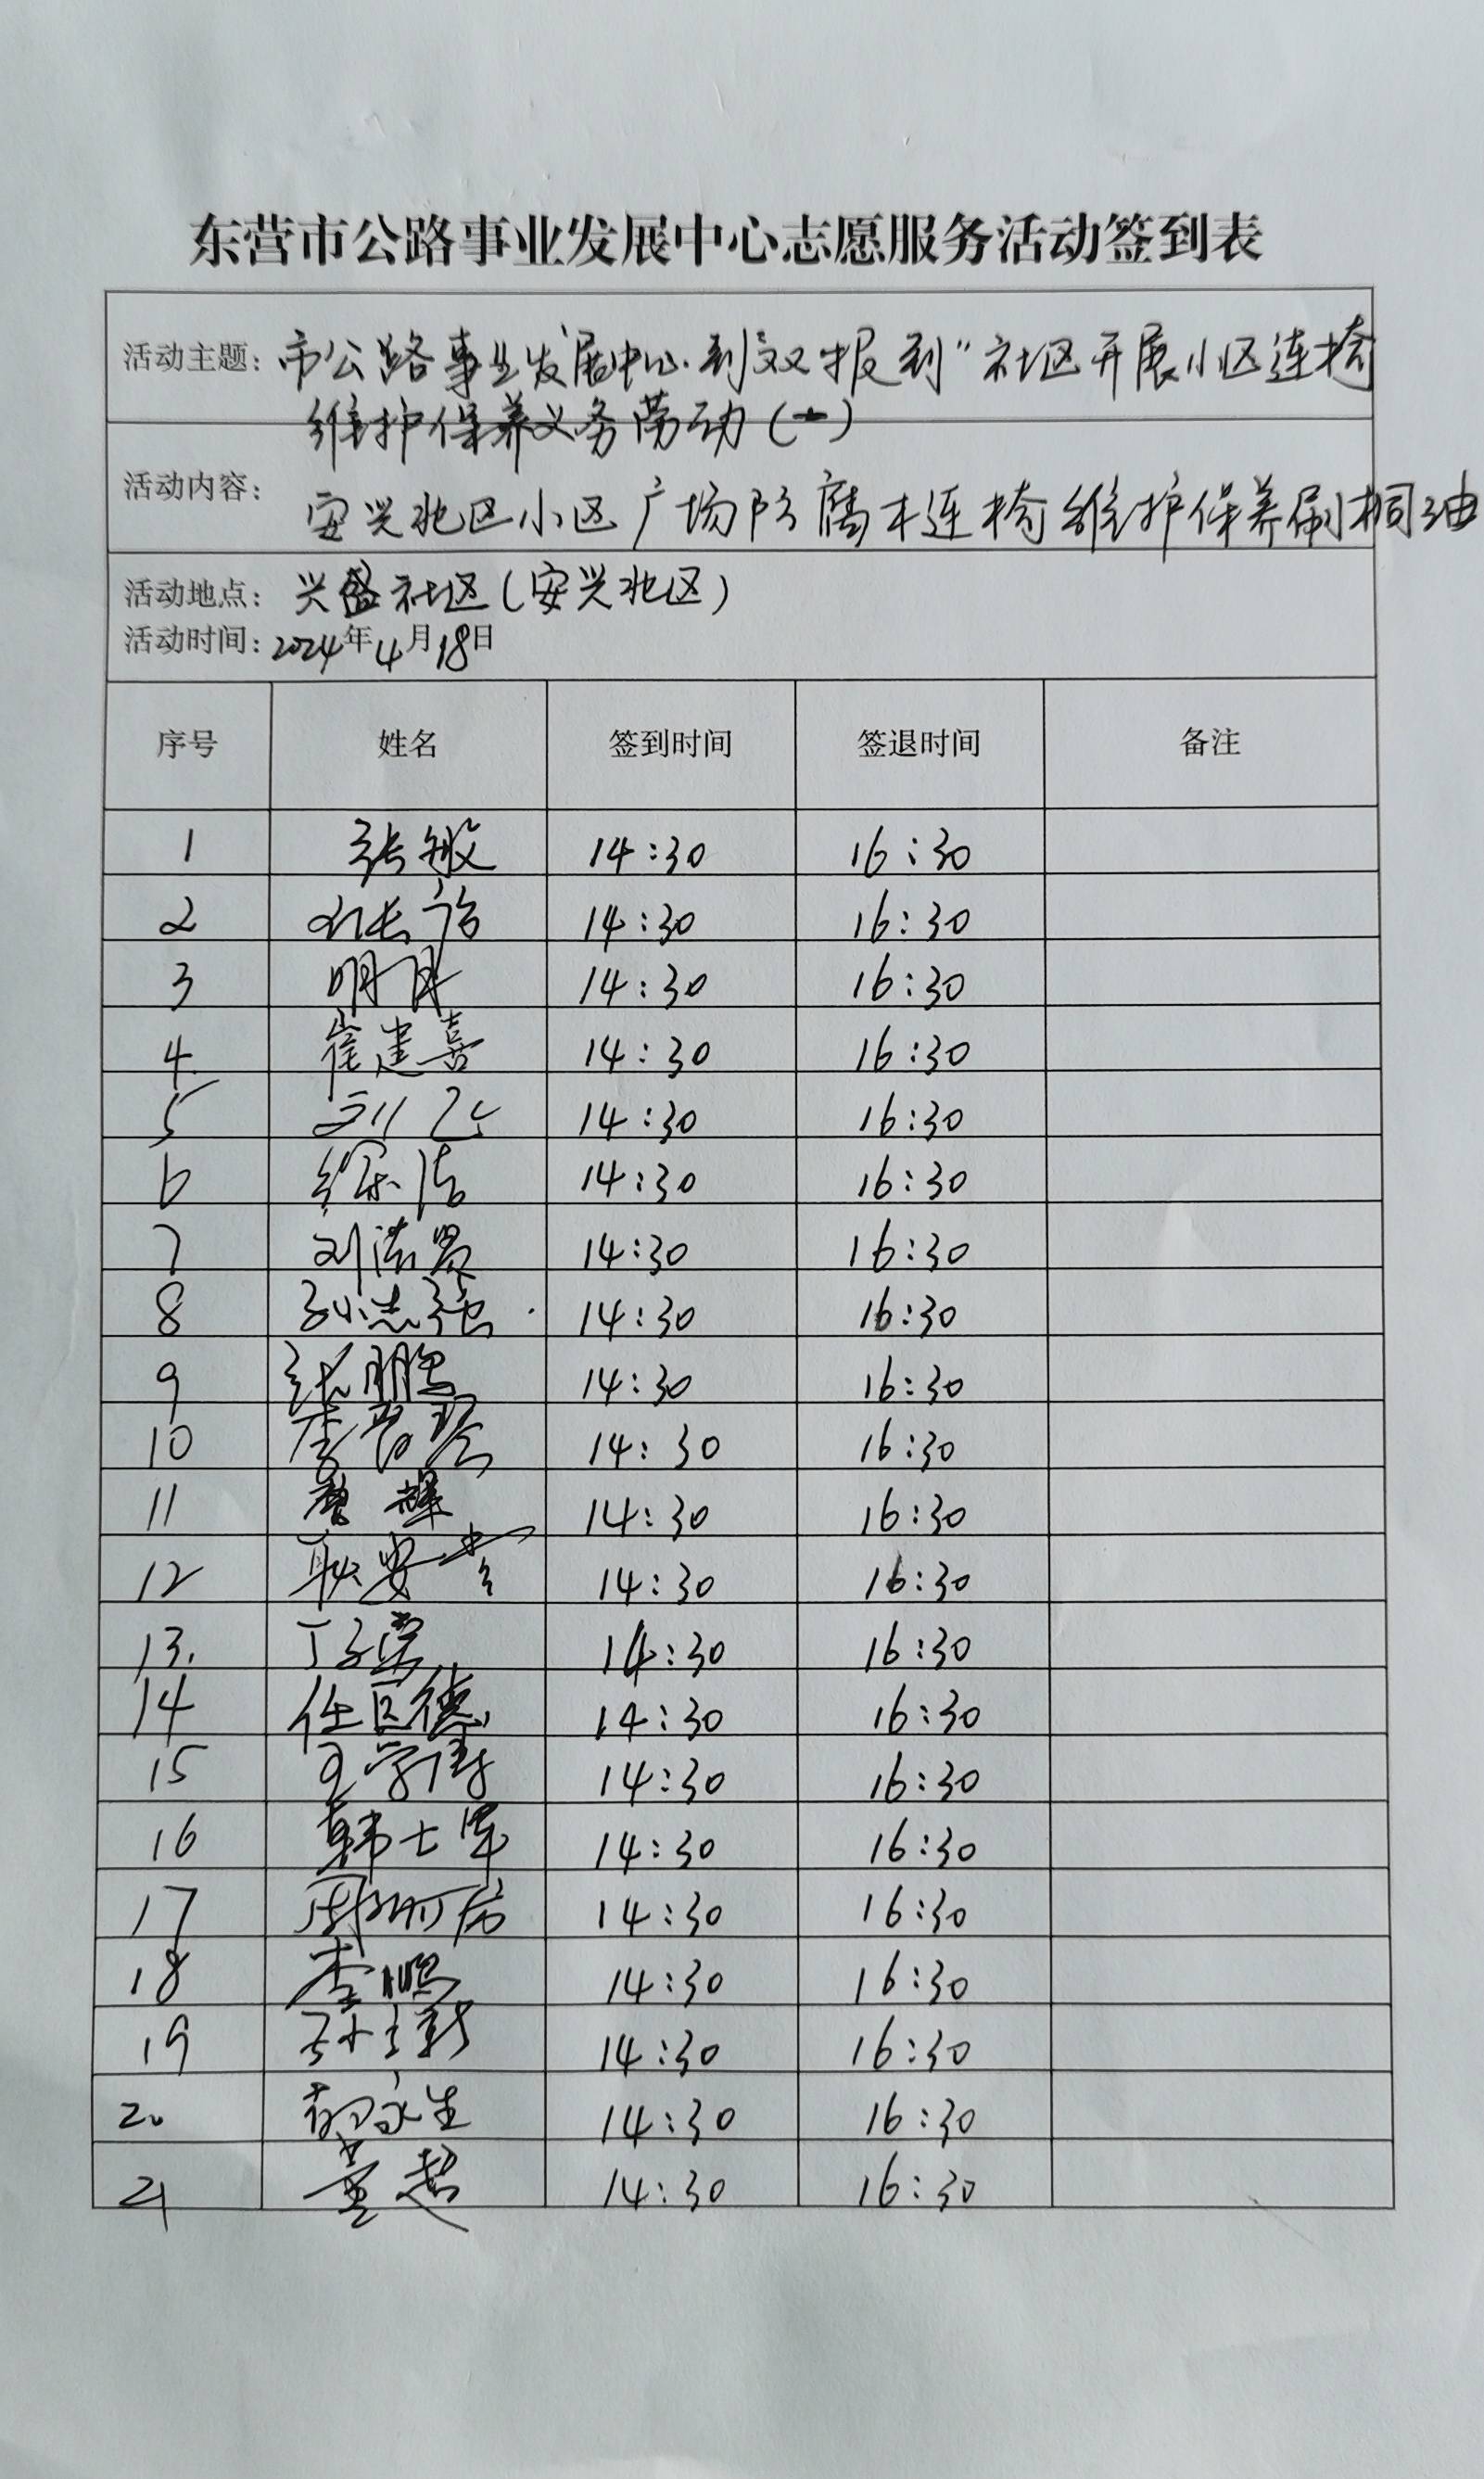 东营市公路事业发展中心志愿服务活动签到表
活动主题：市公路事业发展中心到"双报到"社区开展小区连椅
维护保养义务劳动（一）
活动内容：
安兴北区小区广场防腐木连椅维护保养刷桐油
活动地点：兴盛社区（安兴北区）
活动时间：2024年4月18日
序号 姓名 签到时间 签退时间 备注
1 张敏 14:30 16:30
2 14:30 16:30
3 明月 14:30 16:30
4 崔建喜 14:30 16:30
5 刘飞 14:30 16:30
6 徐洁 14:30 16:30
7 刘 14:30 16:30
8 孙志强 14:30 16:30
9 张鹏 14:30 16:30
10 李 14:30 16:30
11 14:30 16:30
12 耿安 14:30 16:30
13. 丁 14:30 16:30
14 任巨德 14:30 16:30
15 王学 14:30 16:30
16 韩士军 14:30 16:30
17 周 14:30 16:30
18 李 14:30 16:30
19 孙 14:30 16:30
20 郝永生 14:30 16:30
21 董超 14:30 16:30